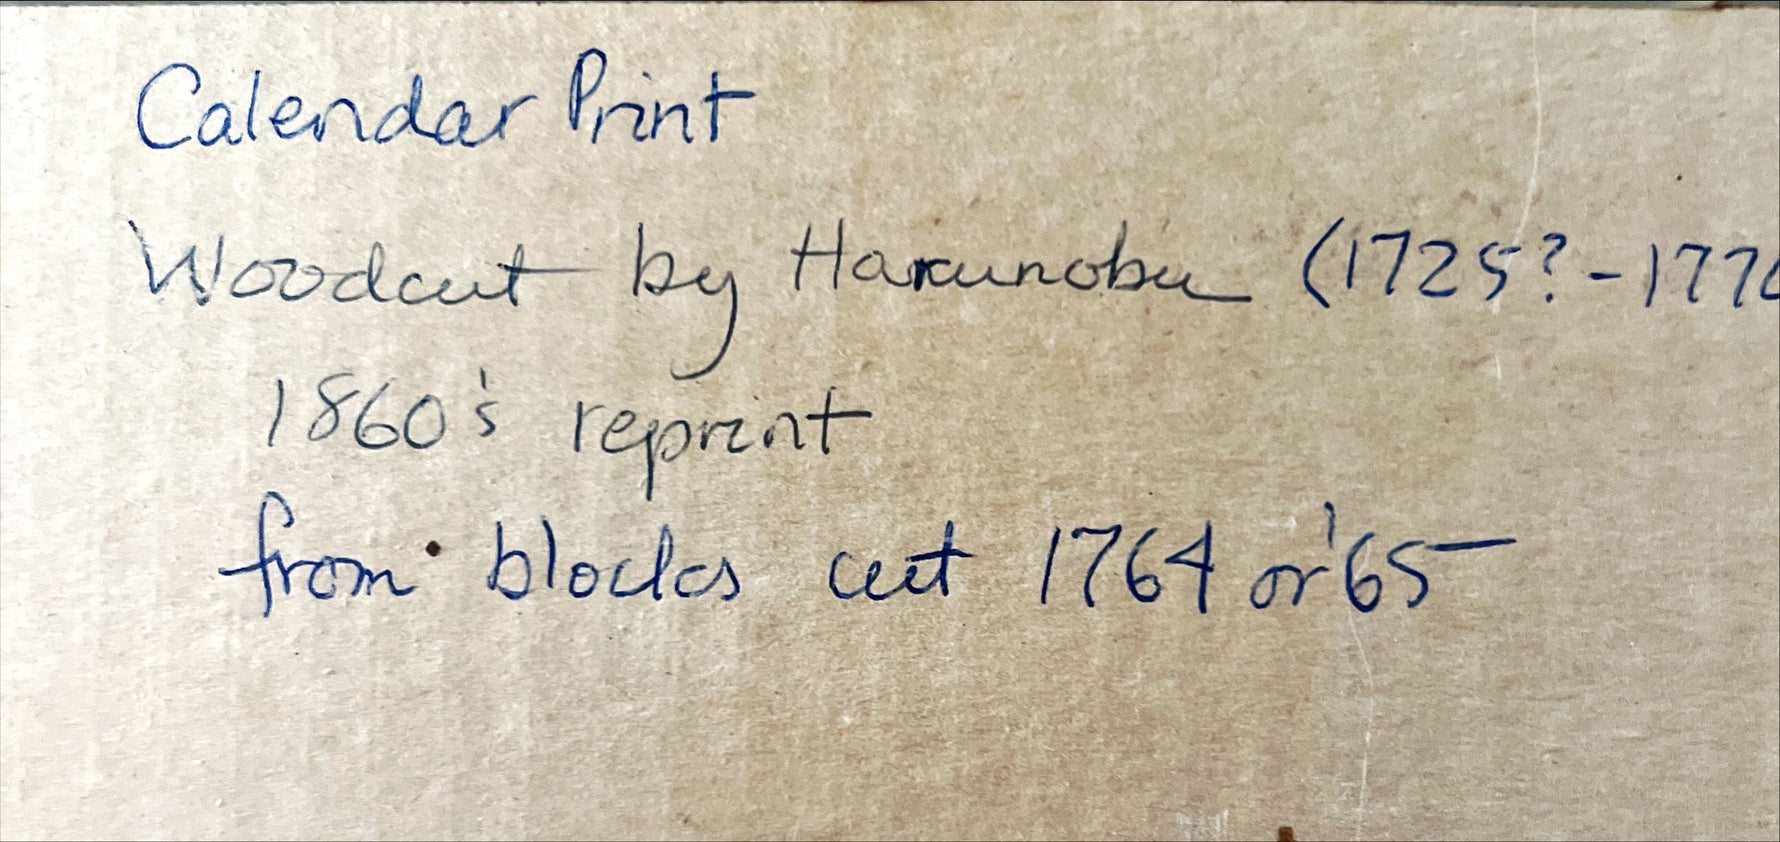 Calendar Print
Woodcut by Harunobu (1725?-1770
1860's reprint
from blocks cut 1764 or '65